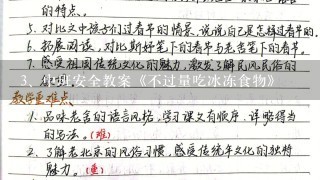 的特点。
5. 对比文中孩子们过春节的情景,说说自己是怎样过春节的。
6. 拓展阅读,对比斯妤笔下的春节与老舍笔下的春节。
7. 感受祖国传统文化的魅力,激发了解民风民俗的
3、中班安全教案《不过量吃冰冻食物》
教学重难点、
1. 品味老舍的语言风格,学习课文有顺序、详略得当
的写法。(难)
2. 了解老北京的风俗习惯,感受传统年文化的独特
魅力。(重)